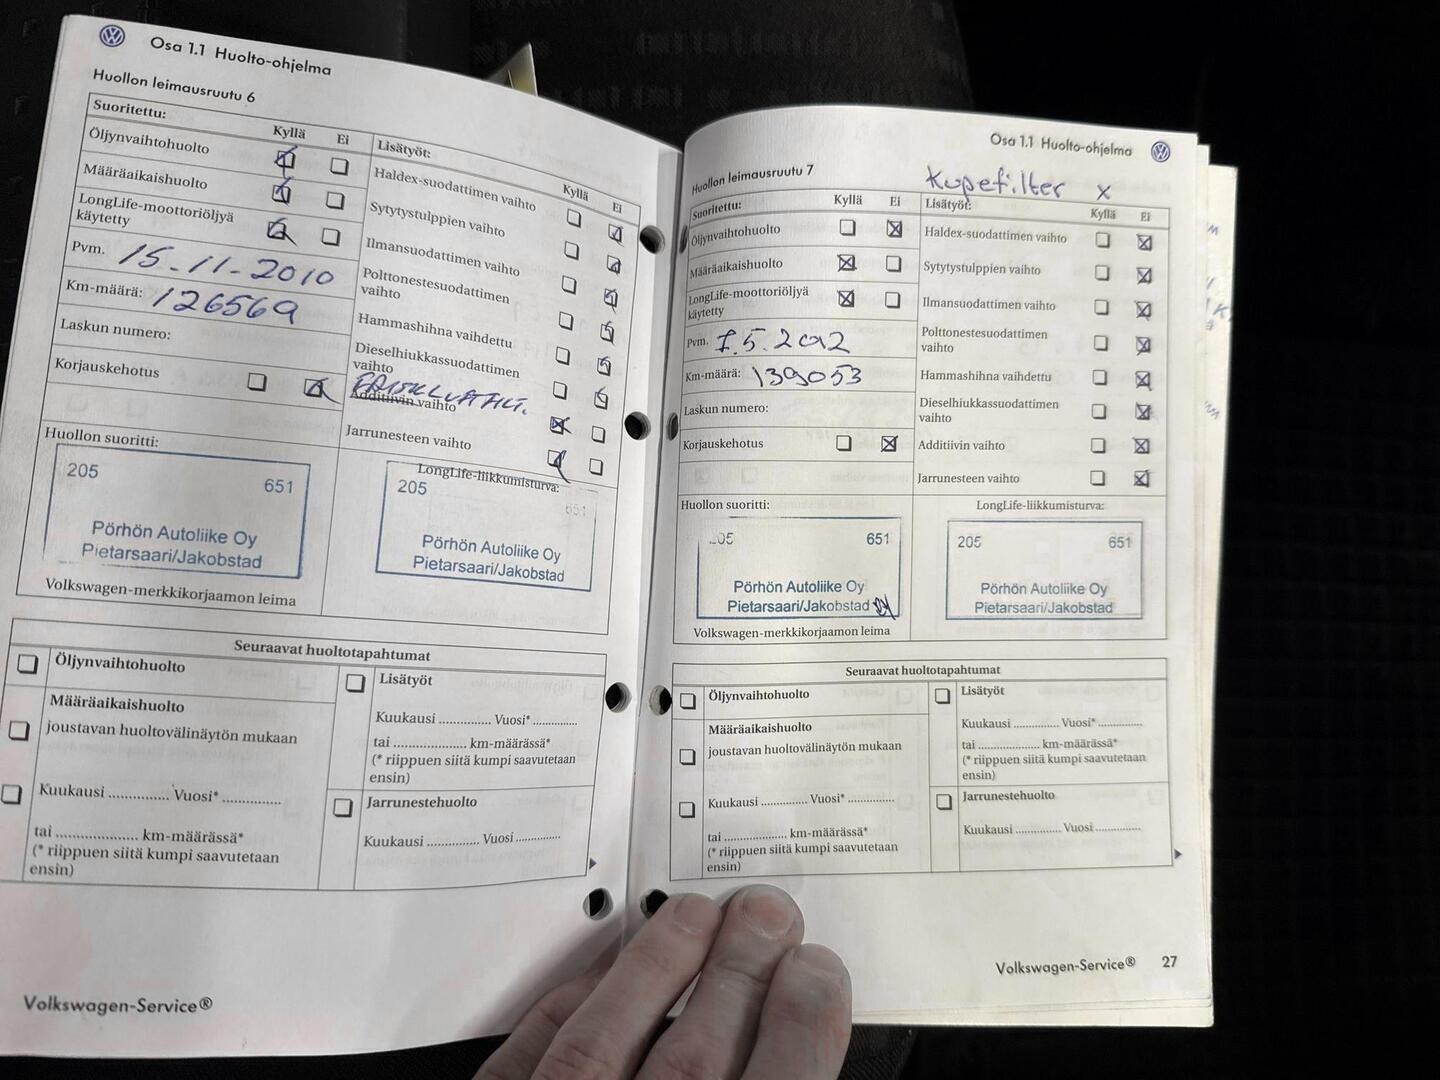 Osa 1.1 Huolto-ohjelma
Huollon leimausruutu 6
Suoritettu:
Kyllä Ei
Öljynvaihtohuolto
Määräaikaishuolto
LongLife-moottoriöljyä
käytetty
Pvm. 15.-11-2010
Km-määrä: 126569
Laskun numero:
Korjauskehotus
Lisätyöt:
Kyllä Ei
Haldex-suodattimen vaihto
Sytytystulppien vaihto
Ilmansuodattimen vaihto
Polttonestesuodattimen
vaihto
Hammashihna vaihdettu
Dieselhiukkassuodattimen
vaihto
Additiivin vaihto
Jarrunesteen vaihto
Huollon suoritti:
205 651
Pörhön Autoliike Oy
Pietarsaari/Jakobstad
Volkswagen-merkkikorjaamon leima
LongLife-liikkumisturva:
205 651
Pörhön Autoliike Oy
Pietarsaari/Jakobstad
Seuraavat huoltotapahtumat
Öljynvaihtohuolto
Määräaikaishuolto
joustavan huoltovälinäytön mukaan
Kuukausi ............... Vuosi* ...............
tai ..................... km-määrässä*
(* riippuen siitä kumpi saavutetaan
ensin)
Lisätyöt
Kuukausi .............. Vuosi* ............
tai ..................... km-määrässä*
(* riippuen siitä kumpi saavutetaan
ensin)
Jarrunestehuolto
Kuukausi .............. Vuosi ............
Volkswagen-Service®
Osa 1.1 Huolto-ohjelma
Huollon leimausruutu 7
Kupefilter x
Suoritettu:
Kyllä Ei
Öljynvaihtohuolto
Määräaikaishuolto
LongLife-moottoriöljyä
käytetty
Pvm. 7.5.2012
Km-määrä: 139053
Laskun numero:
Korjauskehotus
Lisätyöt:
Kyllä Ei
Haldex-suodattimen vaihto
Sytytystulppien vaihto
Ilmansuodattimen vaihto
Polttonestesuodattimen
vaihto
Hammashihna vaihdettu
Dieselhiukkassuodattimen
vaihto
Additiivin vaihto
Jarrunesteen vaihto
Huollon suoritti:
205 651
Pörhön Autoliike Oy
Pietarsaari/Jakobstad
Volkswagen-merkkikorjaamon leima
LongLife-liikkumisturva:
205 651
Pörhön Autoliike Oy
Pietarsaari/Jakobstad
Seuraavat huoltotapahtumat
Öljynvaihtohuolto
Määräaikaishuolto
joustavan huoltovälinäytön mukaan
Kuukausi .............. Vuosi* ..............
tai ..................... km-määrässä*
(* riippuen siitä kumpi saavutetaan
ensin)
Lisätyöt
Kuukausi .............. Vuosi* ............
tai ..................... km-määrässä*
(* riippuen siitä kumpi saavutetaan
ensin)
Jarrunestehuolto
Kuukausi .............. Vuosi ..............
Volkswagen-Service® 27